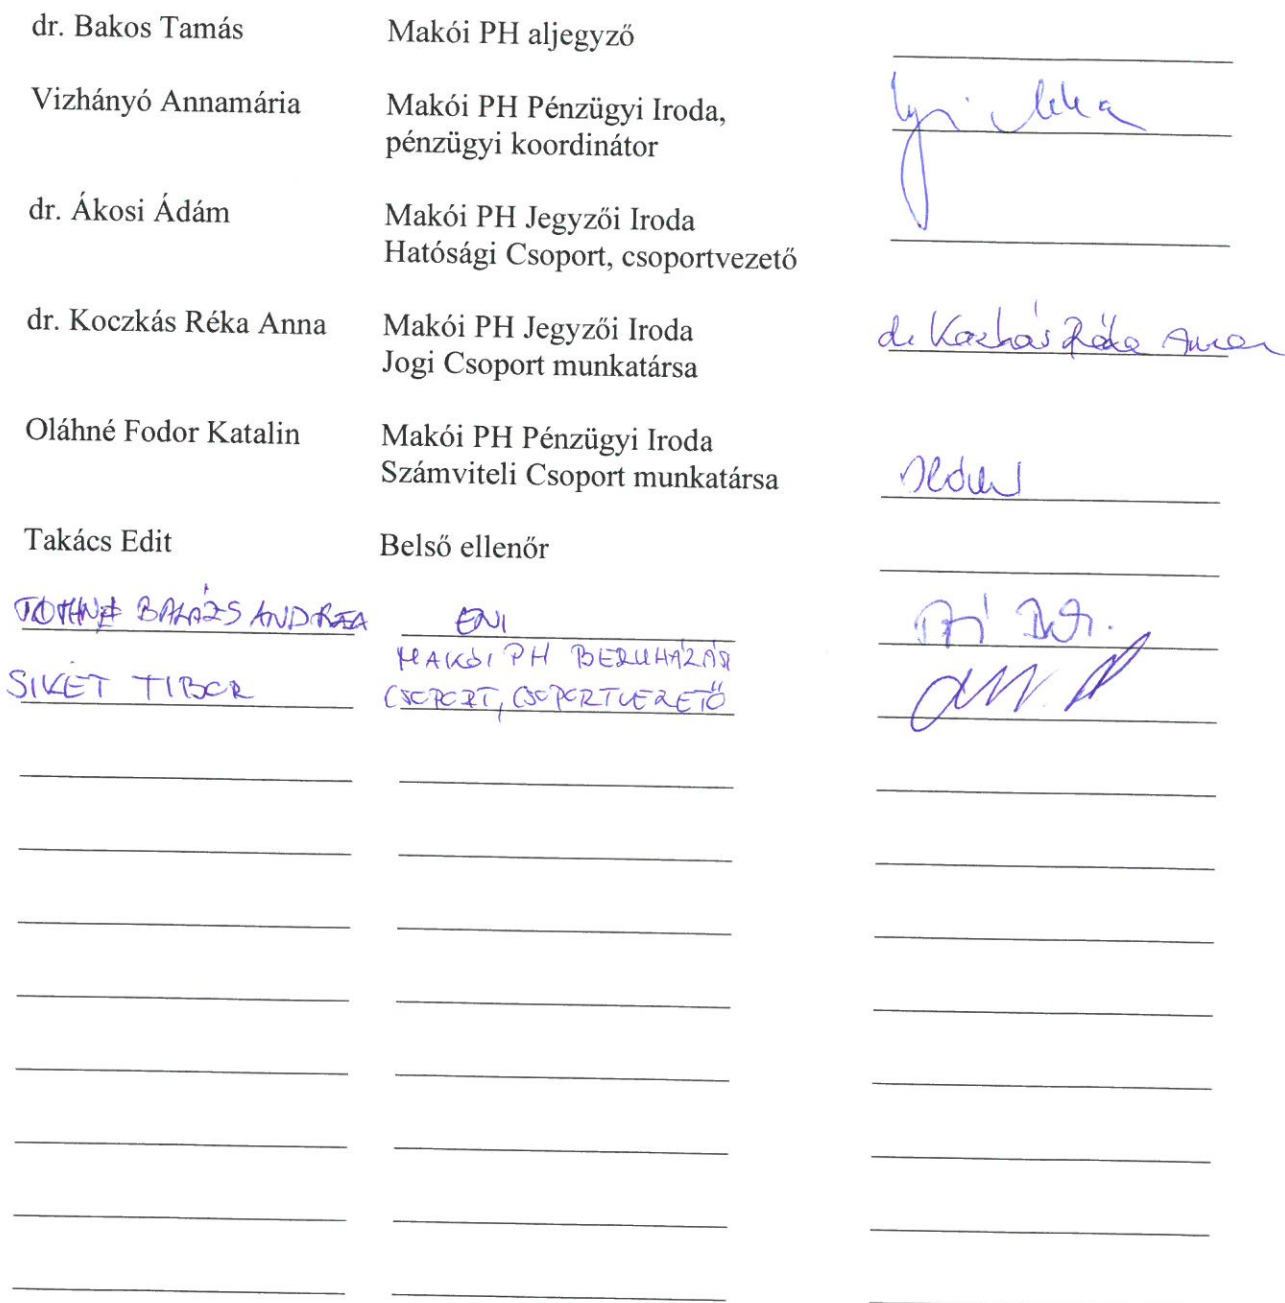 dr. Bakos Tamás Makói PH aljegyző
Vizhányó Annamária Makói PH Pénzügyi Iroda,
pénzügyi koordinátor
dr. Ákosi Ádám Makói PH Jegyzői Iroda
Hatósági Csoport, csoportvezető
dr. Koczkás Réka Anna Makói PH Jegyzői Iroda dr Koczkás Réka Anna
Jogi Csoport munkatársa
Oláhné Fodor Katalin Makói PH Pénzügyi Iroda
Számviteli Csoport munkatársa
Takács Edit Belső ellenőr
TÓTHNÉ BALÁZS ANDREA ENI
MAKÓI PH BERUHÁZÁSI
SIKET TIBOR CSOPORT, CSOPORTVEZETŐ